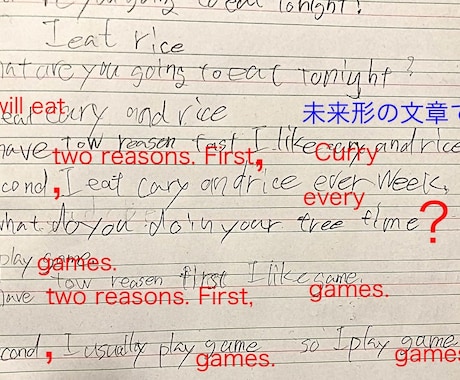 you going to eat tonight?
I eat rice
hat are you going to eat tonight?
will eat
eat cary and rice
未来形の文章で
have tow reason fast I like cary and rice
two reasons. First, Curry
cond, I eat cary and rice ever week,
every
what do you do in your free time?
play game.
games.
tow reason first I like game
have two reasons. First, games.
cond, I usually play game so I play game
games. games